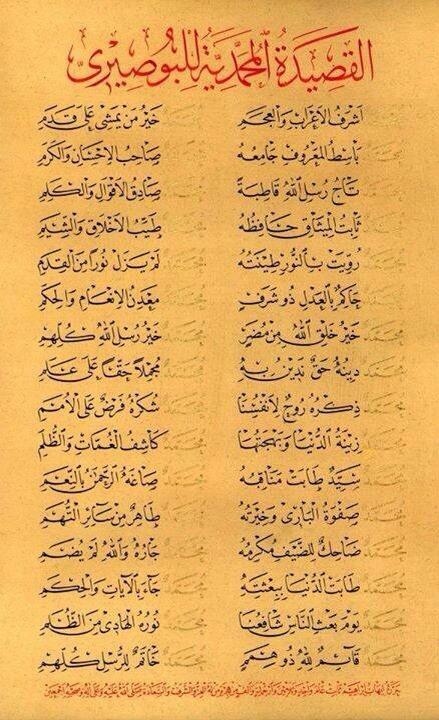 القصيدة المحمدية للبوصيرى
محمد اشرف الاعراب والعجم محمد خير من يمشى على قدم
محمد باسط المعروف جامعه محمد صاحب الاحسان والكرم
محمد تاج رسل الله قاطبة محمد صادق الاقوال والكلم
محمد ثابت الميثاق حافظه محمد طيب الاخلاق والشيم
محمد رويت بالنور طينته محمد لم يزل نورا من القدم
محمد حاكم بالعدل ذو شرف محمد معدن الانعام والحكم
محمد خير خلق الله من مضر محمد خير رسل الله كلهم
محمد دينه حق ندين به محمد مجملا حقا على علم
محمد ذكره روح لانفسنا محمد شكره فرض على الامم
محمد زينة الدنيا وبهجتها محمد كاشف الغمات والظلم
محمد سيد طابت مناقبه محمد صاغه الرحمن بالنعم
محمد صفوة البارى وخيرته محمد طاهر من سائر التهم
محمد ضاحك للضيف مكرمه محمد جاره والله لم يضم
محمد طابت الدنيا ببعثته محمد جاء بالآيات والحكم
محمد يوم بعث الناس شافعنا محمد نوره الهادى من الظلم
محمد قائم لله ذو همم محمد خاتم للرسل كلهم